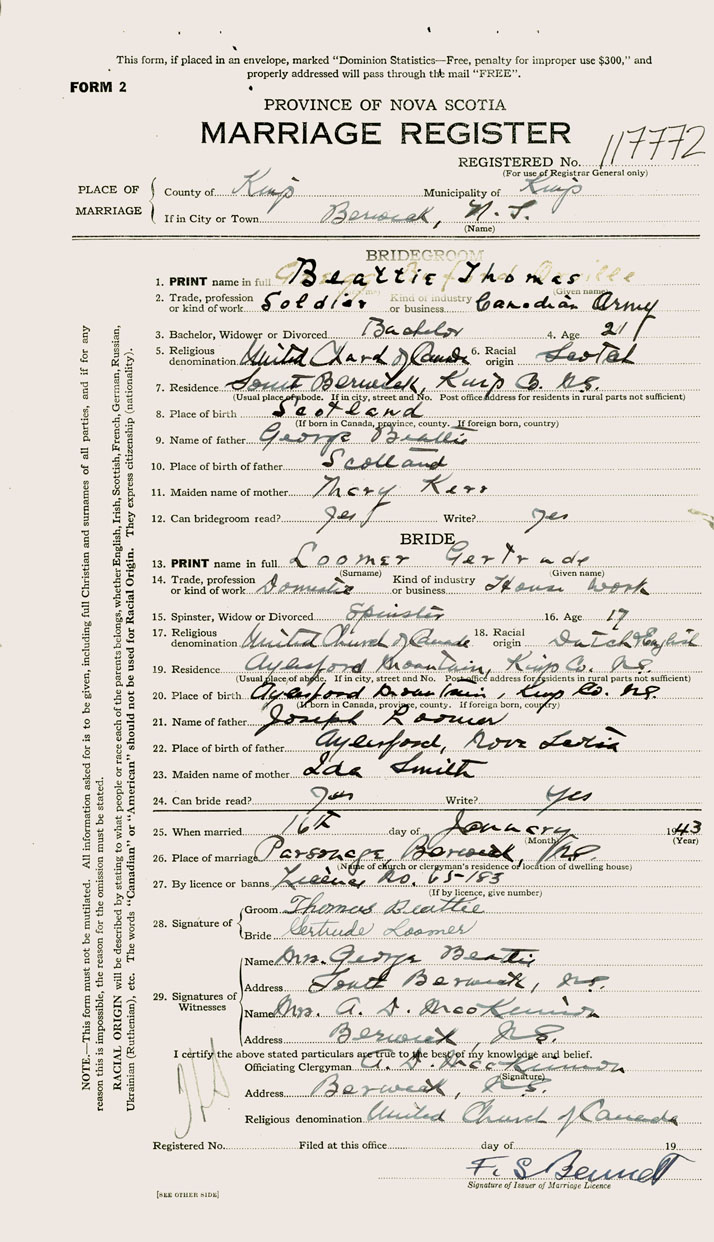 This form, if placed in an envelope, marked “Dominion Statistics—Free, penalty for improper use $300,” and
properly addressed will pass through the mail “FREE”.
FORM 2
PROVINCE OF NOVA SCOTIA
MARRIAGE REGISTER
REGISTERED No. 117772
(For use of Registrar General only)
PLACE OF MARRIAGE
County of Kings Municipality of Kings
If in City or Town Berwick, N. S.
(Name)
BRIDEGROOM
1. PRINT name in full Beattie Thomas
(Given name)
2. Trade, profession or kind of work Soldier Kind of industry or business Canadian Army
3. Bachelor, Widower or Divorced Bachelor 4. Age 21
5. Religious denomination United Church of Canada 6. Racial origin Scotch
7. Residence South Berwick, Kings Co. N.S.
(Usual place of abode. If in city, street and No. Post office address for residents in rural parts not sufficient)
8. Place of birth Scotland
(If born in Canada, province, county. If foreign born, country)
9. Name of father George Beattie
10. Place of birth of father Scotland
11. Maiden name of mother Mary Kerr
12. Can bridegroom read? Yes Write? Yes
BRIDE
13. PRINT name in full Loomer Gertrude
(Surname) (Given name)
14. Trade, profession or kind of work Domestic Kind of industry or business House work
15. Spinster, Widow or Divorced Spinster 16. Age 17
17. Religious denomination United Church of Canada 18. Racial origin Dutch & English
19. Residence Aylesford Mountain, Kings Co. N.S.
(Usual place of abode. If in city, street and No. Post office address for residents in rural parts not sufficient)
20. Place of birth Aylesford Mountain, Kings Co. N.S.
(If born in Canada, province, county. If foreign born, country)
21. Name of father Joseph Loomer
22. Place of birth of father Aylesford, Nova Scotia
23. Maiden name of mother Ida Smith
24. Can bride read? Yes Write? Yes
25. When married 16th day of January 1943
(Month) (Year)
26. Place of marriage Parsonage, Berwick, N.S.
(Name of church or clergyman's residence or location of dwelling house)
27. By licence or banns License No. 65-183
(If by licence, give number)
28. Signature of
Groom Thomas Beattie
Bride Gertrude Loomer
29. Signatures of Witnesses
Name Mrs. George Beattie
Address South Berwick, N.S.
Name Mrs. A. D. MacKinnon
Address Berwick, N.S.
I certify the above stated particulars are true to the best of my knowledge and belief.
Officiating Clergyman A. D. MacKinnon
(Signature)
Address Berwick, N.S.
Religious denomination United Church of Canada
Registered No. Filed at this office day of 19
F. S. Bennett
Signature of Issuer of Marriage Licence
[SEE OTHER SIDE]
NOTE.—This form must not be mutilated. All information asked for is to be given, including full Christian and surnames of all parties, and if for any
reason this is impossible, the reason for the omission must be stated.
RACIAL ORIGIN will be described by stating to what people or race each of the parents belongs, whether English, Irish, Scottish, French, German, Russian,
Ukrainian (Ruthenian), etc. The words “Canadian” or “American” should not be used for Racial Origin. They express citizenship (nationality).